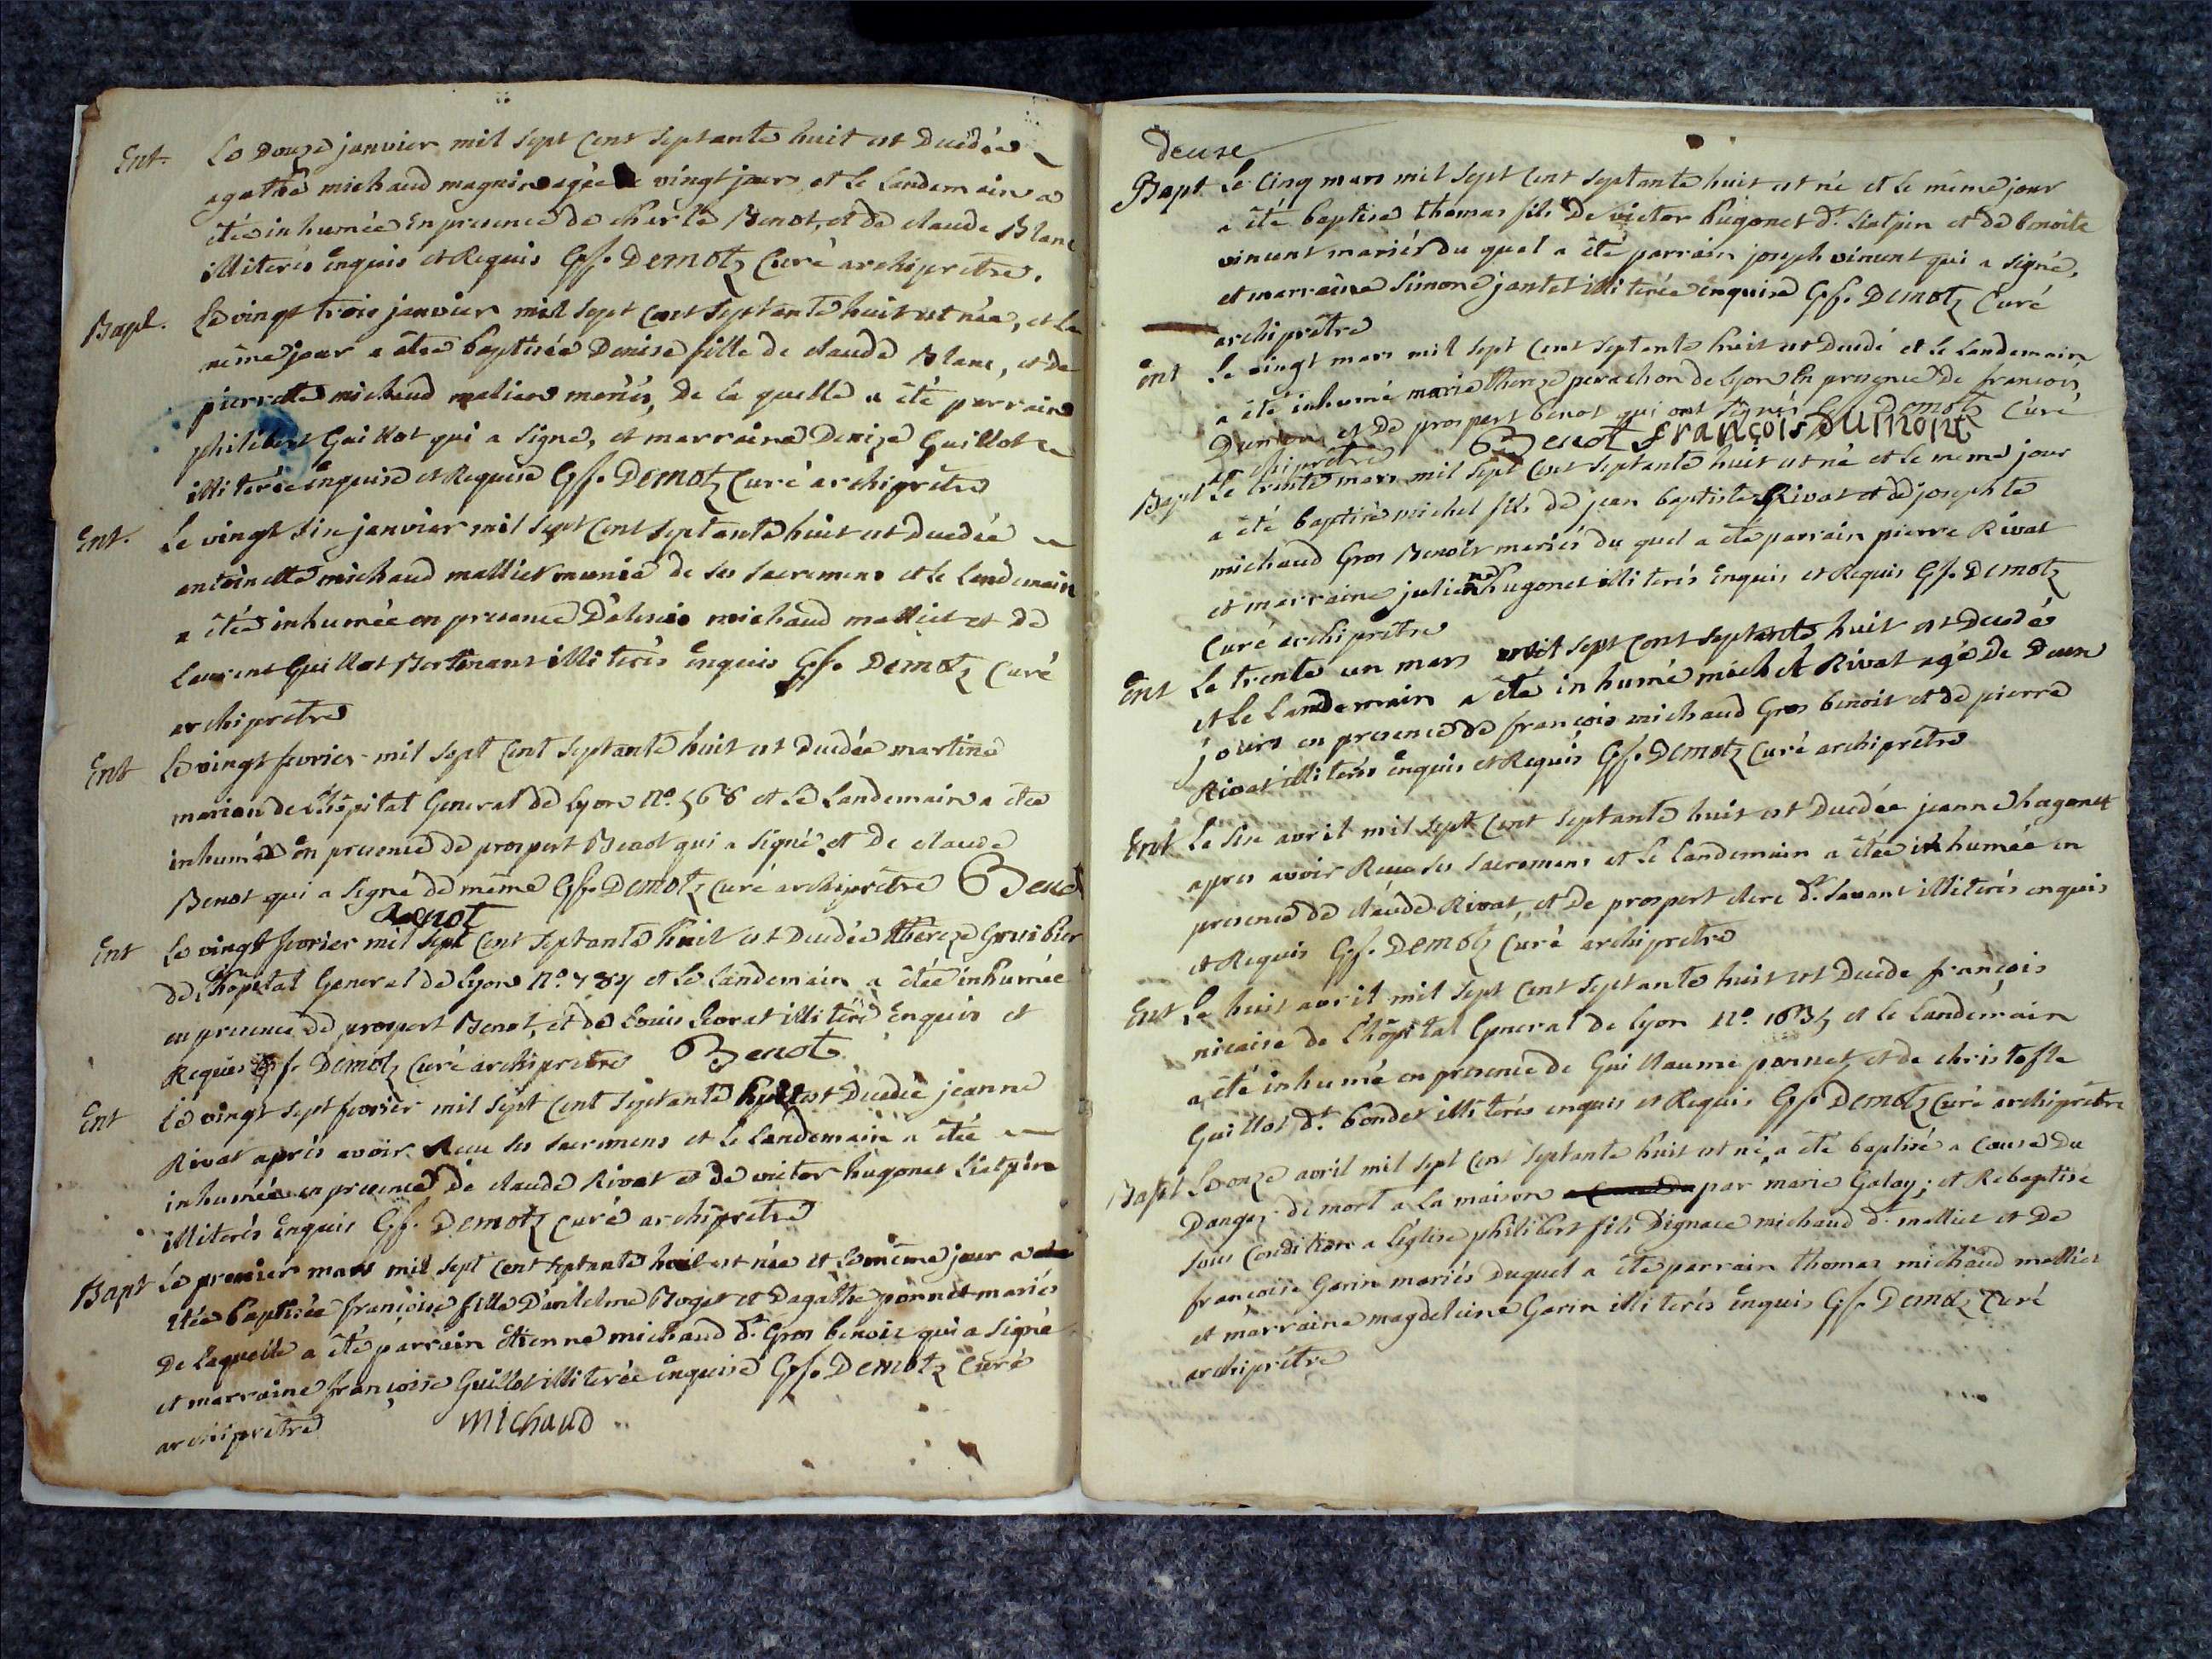 Ent. Le douze janvier mil sept cent septante huit est decedée
agathe michaud magnin agée de vingt jours et le landemain a
étée inhumée en presence de charle Benot, et de claude Blanc
illiterés enquis et Requis Gf. Demotz Curé archiprêtre.
Bapt. Le vingt trois janvier mil sept cent septante huit est née, et le
même jour a étée baptisée Denise fille de claude Blanc, et de
pierrette michaud maliens mariés, de la quelle a été parrain
philibert Guillot qui a signé, et marraine Denize Guillot
illiterée enquise et Requise Gf. Demotz Curé archiprêtre
Ent. Le vingt six janvier mil sept cent septante huit est decedée
antoinette michaud malliet munie de ses sacremens et le landemain
a étée inhumée en presence D'alexis michaud malliet et de
Laurent Guillot illiterés enquis Gf. Demotz Curé
archiprêtre
Ent Le vingt fevrier mil sept cent septante huit est decedée martine
marion de L'hôpital General de Lyon N.o 568 et Le Landemain a étée
inhumée en presence de prospert Benot qui a signé et de claude
Benot qui a signé de même Gf. Demotz curé archiprêtre Benot
Benot
Ent Le vingt fevrier mil sept cent septante huit est decedée thereze Gruibier
de L'hopital General de Lyon N.o 784 et Le Landemain a étée inhumée
en presence de prospert Benot, et de Louis Levrat illiteré enquis et
Requis Gf. Demotz Curé archiprêtre Benot
Ent Le vingt sept fevrier mil sept cent septante huit est decedée jeanne
Rivat aprés avoir Reçu ses sacremens et le landemain a étée
inhumée en presence de claude Rivat et de victor hugonet Liatpin
illiterés enquis Gf. Demotz curé archiprêtre
Bapt Le premier mars mil sept cent septante huit est née et le même jour a
étée baptisée françoise fille D'antelme Roget et D'agathe ponnet mariés
De laquelle a été parrain étienne michaud d.t Gros benoit qui a signé
et marraine françoise Guillot illiterée enquise Gf. Demotz Curé
archiprêtre michaud
deuxe
Bapt Le cinq mars mil sept cent septante huit est né et le même jour
a été baptisé thomas fils De victor hugonet d.t Liatpin et de benoite
vincent mariés du quel a été parrain joseph vincent qui a signé,
et marraine Simone jantet illiterée enquise Gf. Demotz Curé
archiprêtre
Ent Le vingt mars mil sept cent septante huit est decedé et le landemain
a été inhumé marie thereze perachon de Lyon en presence de francois
Dumon et de prospert benot qui ont signés Gf. Demotz Curé
archiprêtre Benot françois Dumont
Bapt Le trente mars mil sept cent septante huit est né et le meme jour
a été baptisé michel fils de jean baptiste Rivat et de josephte
michaud Gros Benoit mariés du quel a été parrain pierre Rivat
et marraine julienne hugonet illiterés enquis et Requis Gf. Demotz
Curé archiprêtre
Ent Le trente un mars mil sept cent septante huit est decedé
et Le Landemain a été inhumé michel Rivat agé De Deux
jours en presence de françois michaud Gros benoit et de pierre
Rivat illiterés enquis et Requis Gf. Demotz Curé archiprêtre
Ent Le six avril mil sept cent septante huit est decedée jeanne hugonet
apres avoir Reçu ses sacremens et le landemain a étée inhumée en
presence de claude Rivat, et de prospert clerc d.t Savant illiterés enquis
et Requis Gf. Demotz Curé archiprêtre
Ent Le huit avril mil sept cent septante huit est decedé françois
nicaise de L'hôpital General de Lyon N.o 1634 et le landemain
a été inhumé en presence de Guillaume ponnet, et de christofle
Guillot d.t bondet illiterés enquis et Requis Gf. Demotz Curé archiprêtre
Bapt Le onze avril mil sept cent septante huit est né, a été baptisé a cause du
Danger de mort a la maison par marie Galay; et Rebaptisé
sous condition a l'église philibert fils D'ignace michaud d.t malliet et De
françoise Garin mariés duquel a été parrain thomas michaud malliet
et marraine magdeleine Garin illiterés enquis Gf. Demotz Curé
archiprêtre